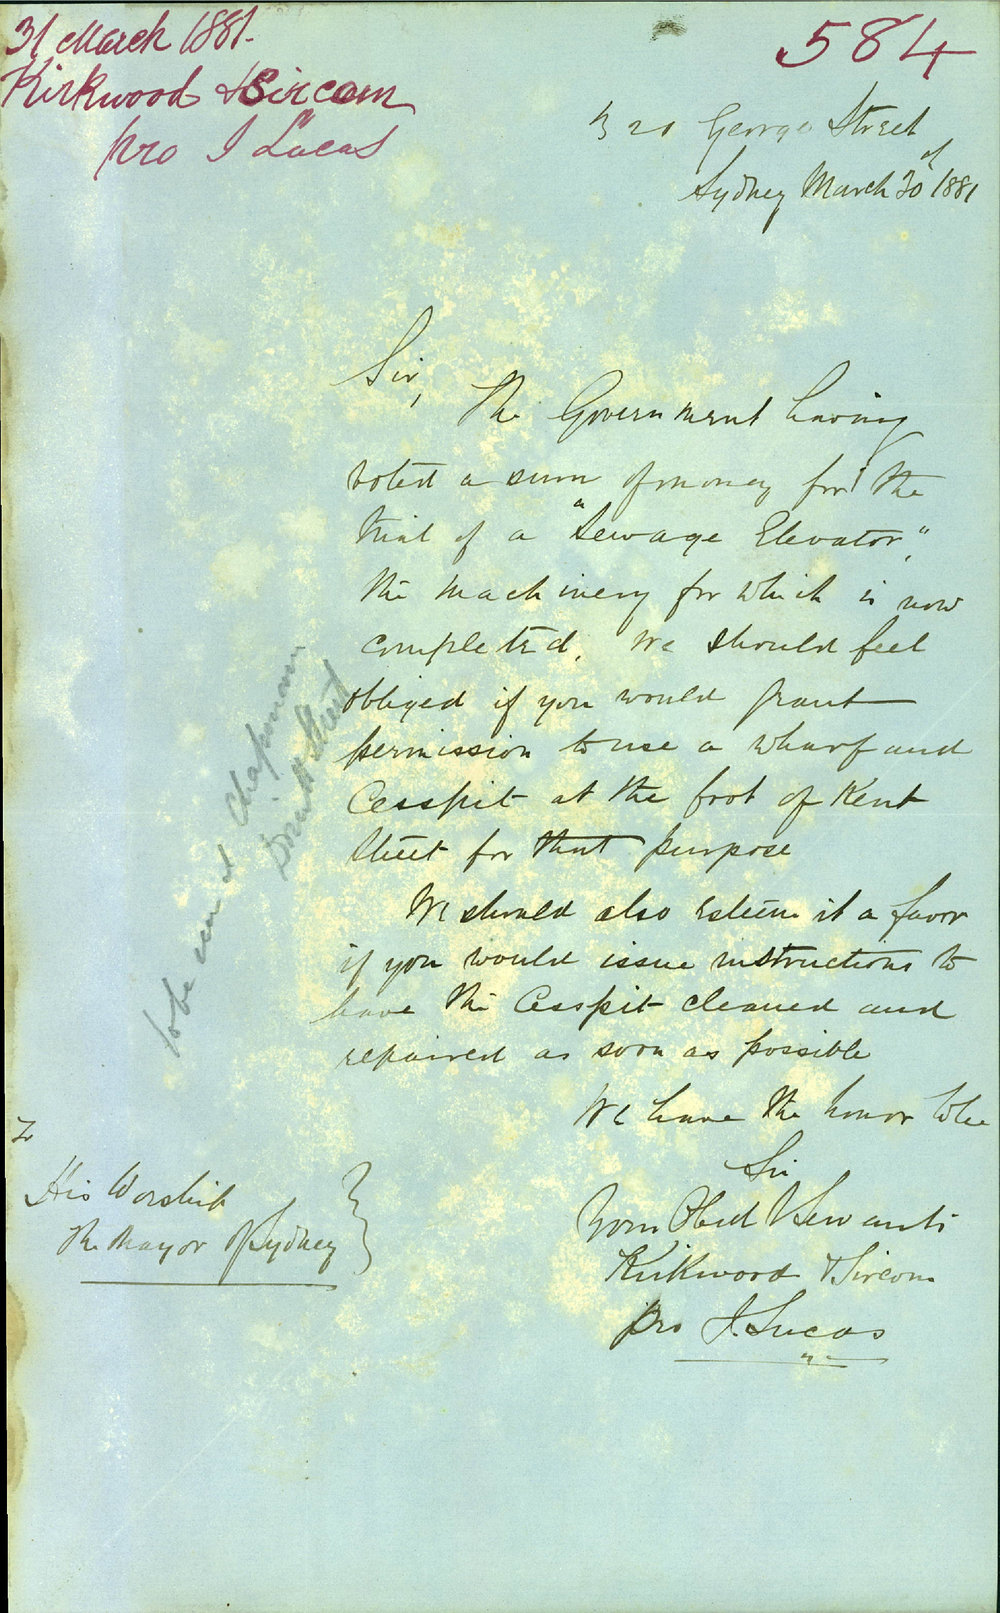 31 March 1881.
Kirkwood & Sircom
pro J Lucas
584
320 George Street
Sydney March 30 1881
Sir,
The Government having
voted a sum of money for the
trial of a "Sewage Elevator",
the machinery for which is now
completed, we should feel
obliged if you would grant
permission to use a wharf and
Cesspit at the foot of Kent
Street for that purpose
We should also esteem it a favor
if you would issue instructions to
have the Cesspit cleaned and
repaired as soon as possible
We have the honor to be
Sir
Your Obed Servants
Kirkwood & Sircom
pro J. Lucas
To
His Worship
The Mayor of Sydney
to be at Chapman
Street